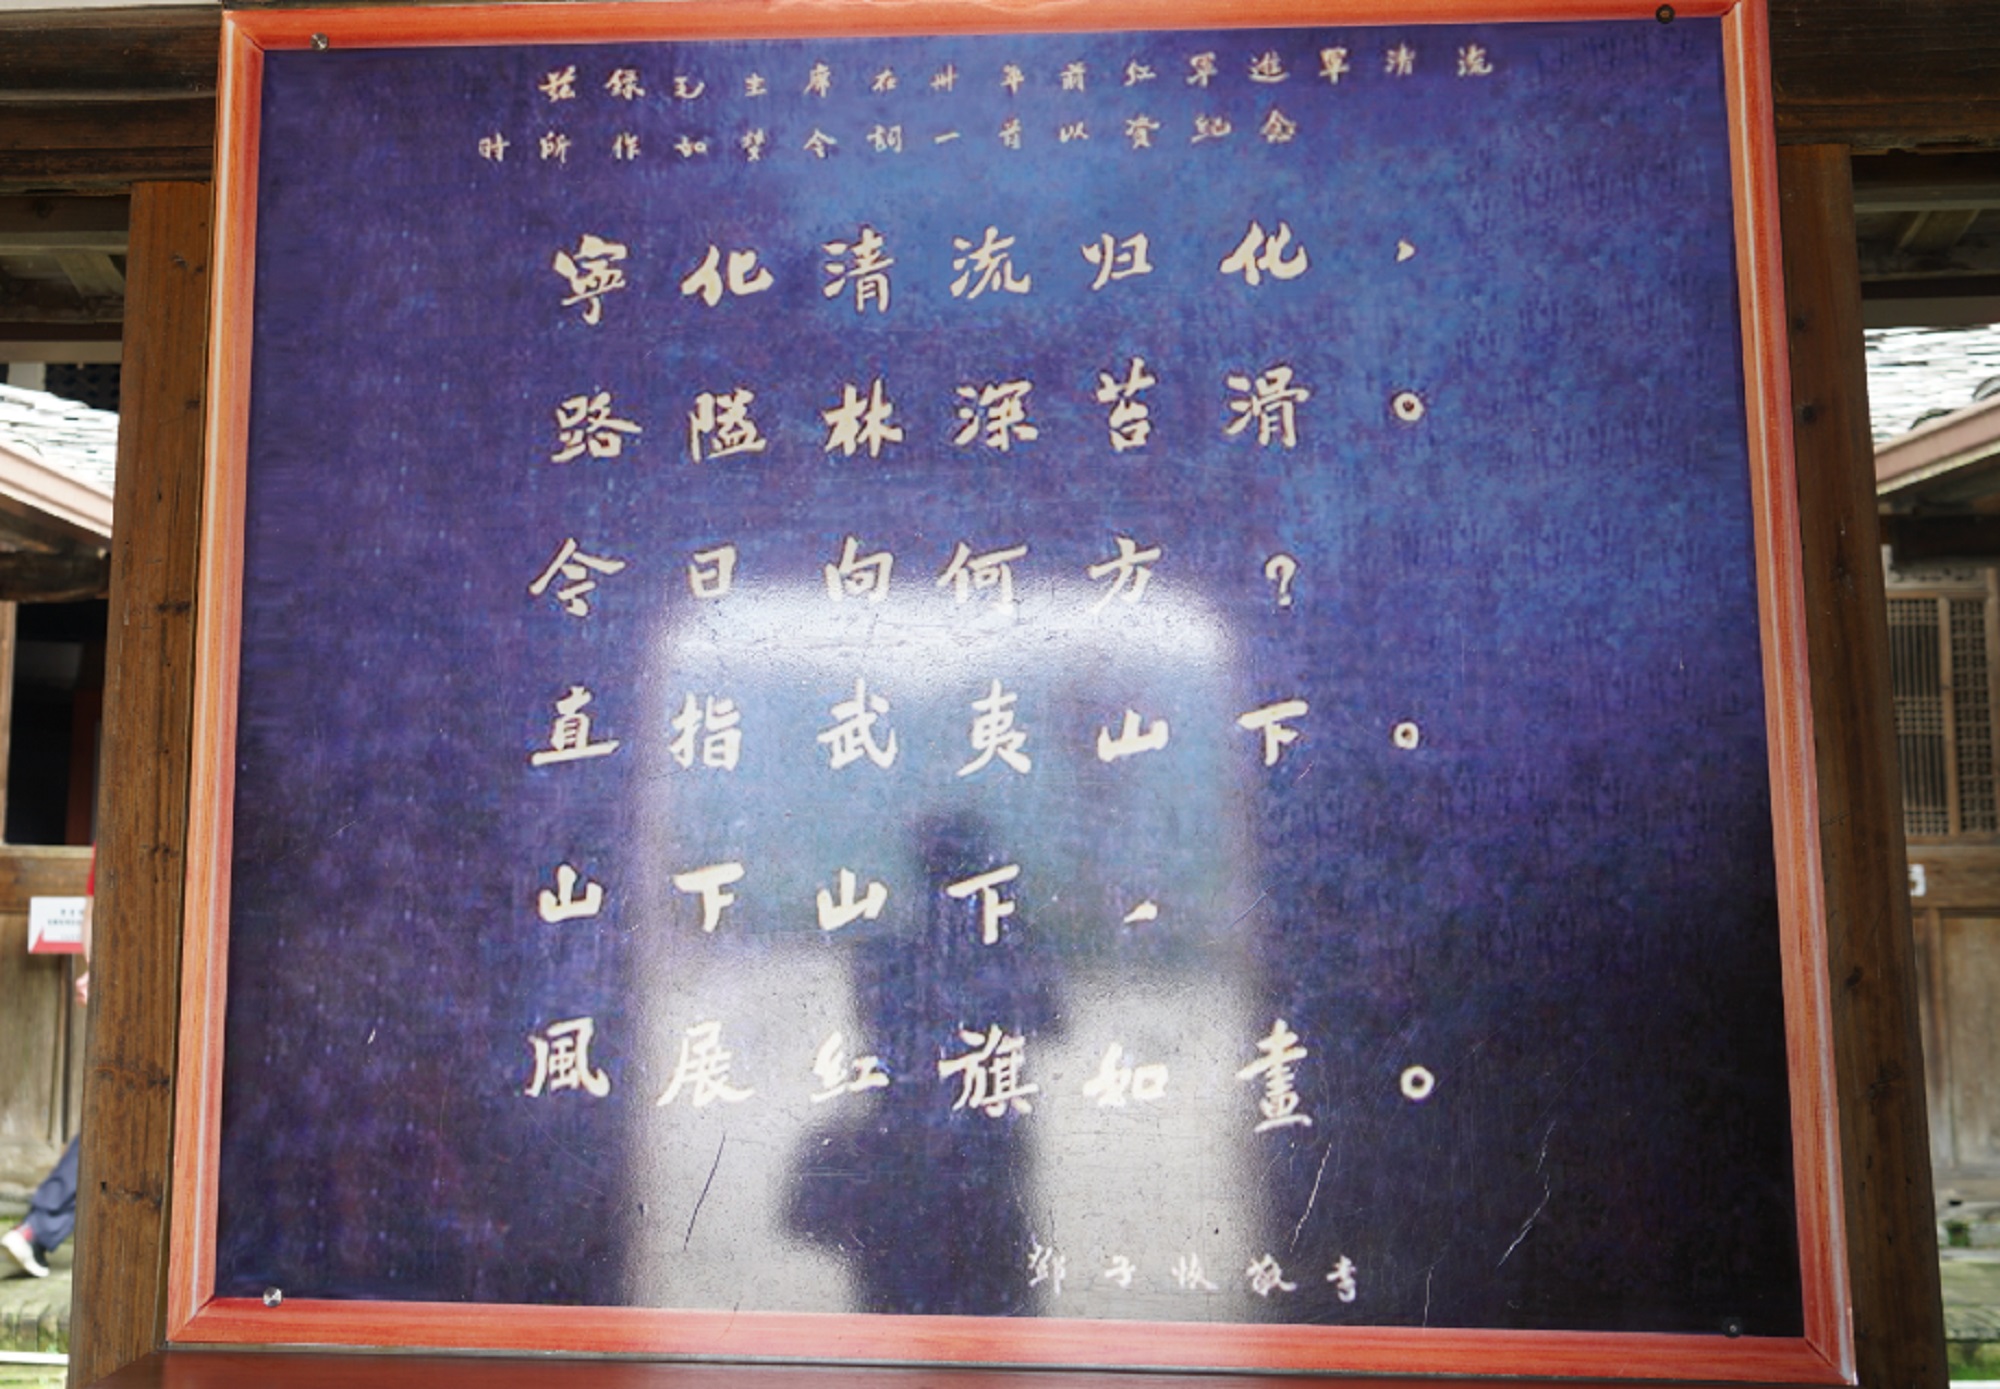 兹錄毛主席在卅年前红軍進軍清流
时所作如梦令詞一首以資紀念
寧化清流归化，
路隘林深苔滑。
今日向何方？
直指武夷山下。
山下山下，
風展红旗如畫。
鄧子恢敬書